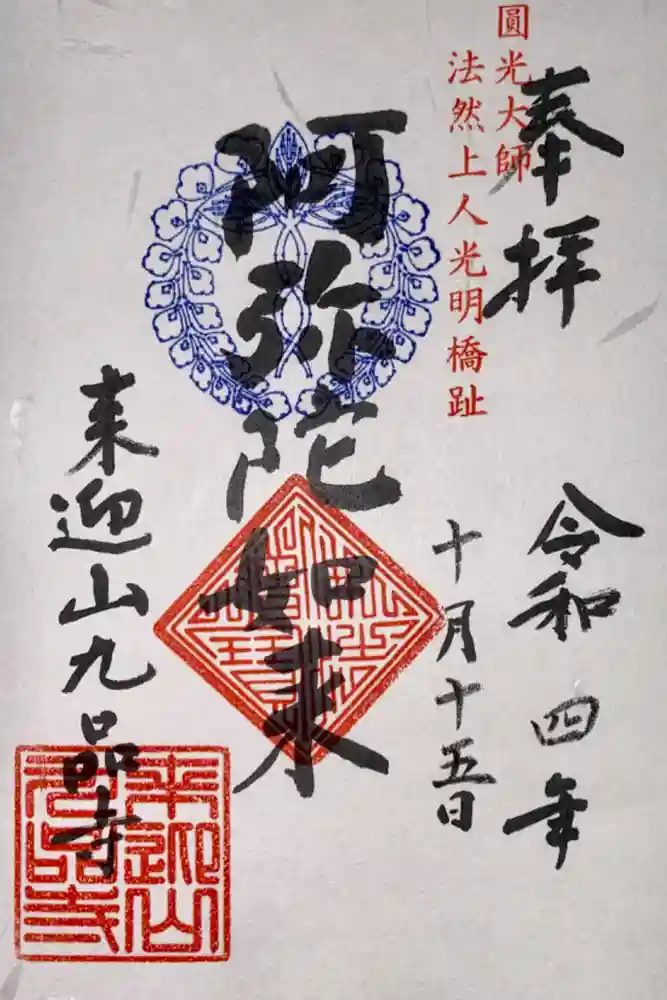 奉拝
圓光大師
法然上人光明橋趾
令和四年
十月十五日
阿弥陀如来
来迎山九品寺
来迎山
九品寺